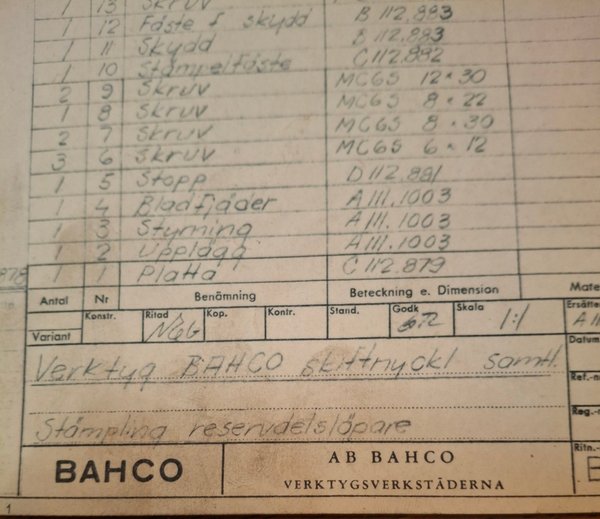 1 13 Skruv
1 12 Fäste f skydd B 112.883
1 11 Skydd B 112.883
1 10 Stämpelfäste C 112.882
2 9 Skruv MC6S 12 × 30
1 8 Skruv MC6S 8 × 22
2 7 Skruv MC6S 8 × 30
3 6 Skruv MC6S 6 × 12
1 5 Stopp D 112.881
1 4 Bladfjäder A 111.1003
1 3 Styrning A 111.1003
1 2 Upplägg A 111.1003
1 1 Platta C 112.879
Antal Nr Benämning Beteckning e. Dimension Mate
Variant Konstr. Ritad Kop. Kontr. Stand. Godk Skala 1:1 Ersätte
Datum
Verktyg BAHCO skiftnyckl samtl.
Ref.-n
Reg.-
Stämpling reservdelsläpare
Ritn.-
BAHCO AB BAHCO
VERKTYGSVERKSTÄDERNA
1